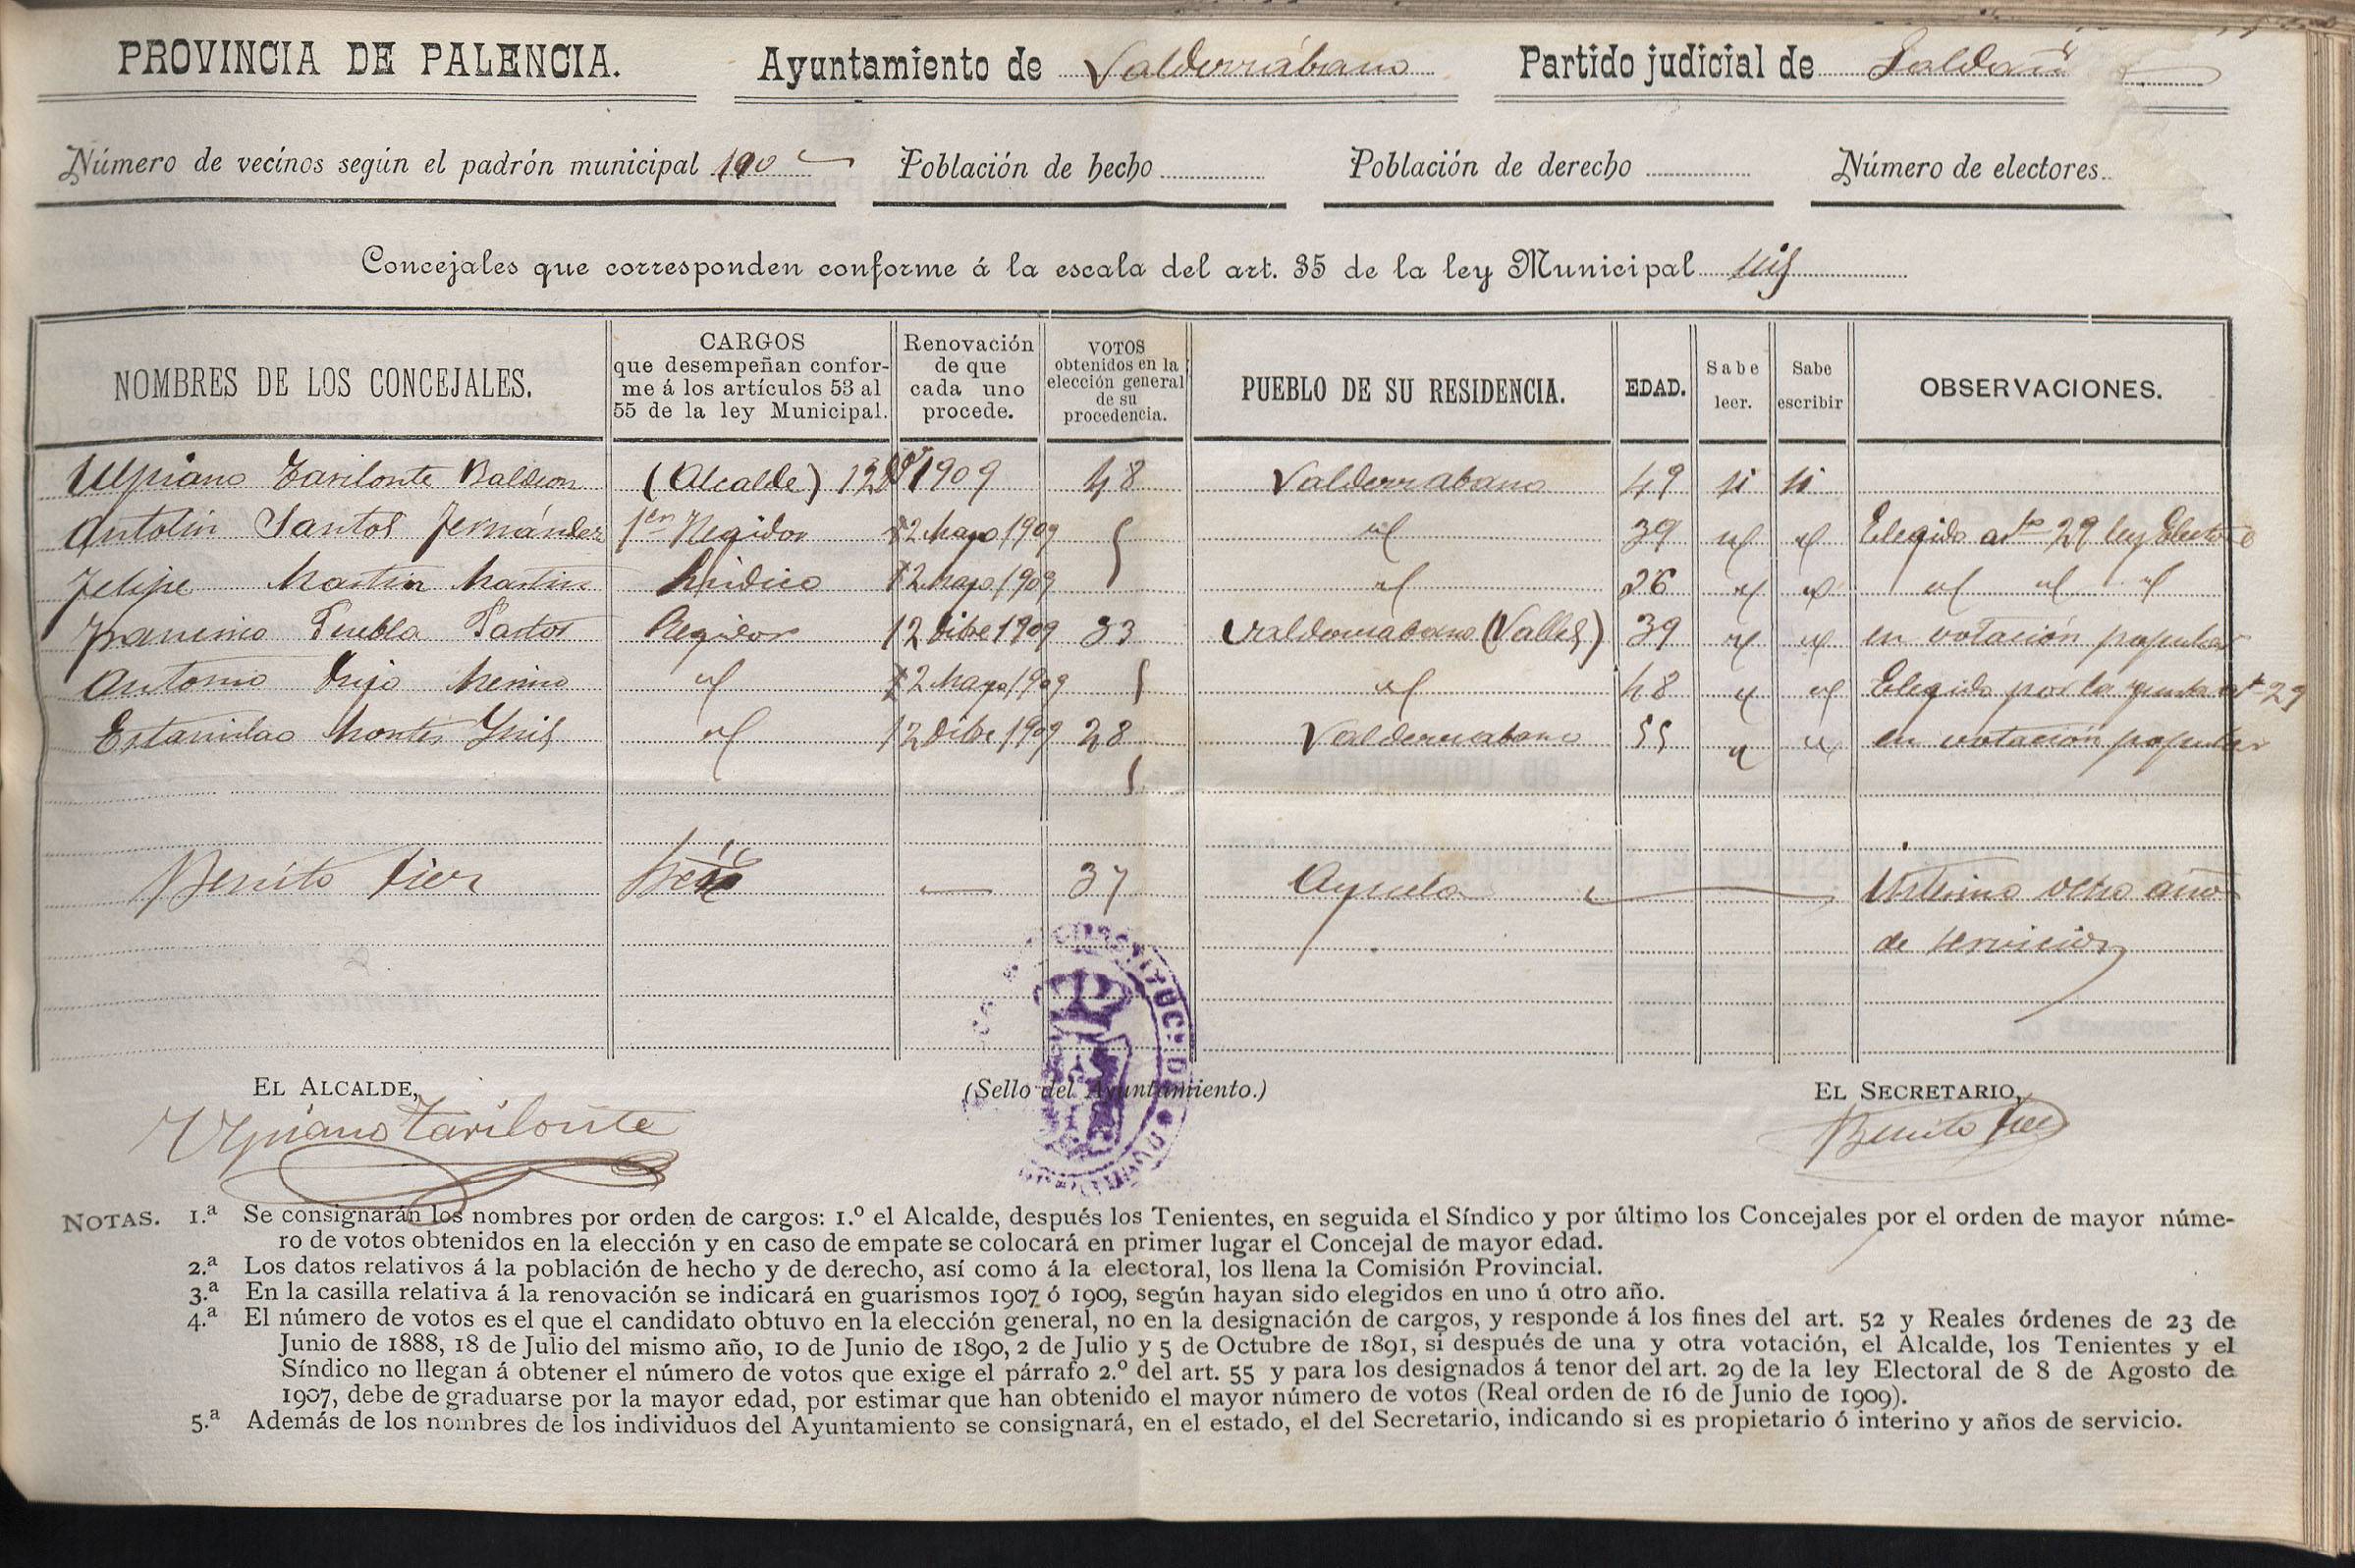 PROVINCIA DE PALENCIA. Ayuntamiento de Valderrábano Partido judicial de Saldaña
Número de vecinos según el padrón municipal 190 Población de hecho Población de derecho Número de electores
Concejales que corresponden conforme á la escala del art. 35 de la ley Municipal seis
NOMBRES DE LOS CONCEJALES. CARGOS que desempeñan conforme á los artículos 53 al 55 de la ley Municipal. Renovación de que cada uno procede. VOTOS obtenidos en la elección general de su procedencia. PUEBLO DE SU RESIDENCIA. EDAD. Sabe leer. Sabe escribir OBSERVACIONES.
Ulpiano Tarilonte Baldeon (Alcalde) 12 1909 48 Valderrabano 49 si si
Antolin Santos Fernández 1er Regidor 12 Mayo 1909 id 39 id id Elegido arto 29 ley Electoral
Felipe Martin Martin Sindico 12 Mayo 1909 id 26 id id id id id
Puebla Pastor Regidor 12 Dibre 1909 33 Valderrabano (Valles) 39 id id en votación popular
Antonio Merino id 12 Mayo 1909 id 48 id id Elegido por la junta art 29
Estanislao Montes id 12 Dibre 1909 28 Valderrabano 55 id id en votación popular
Benito Diez Srio 37 Ayuela Interino ocho años
de servicios
EL ALCALDE, (Sello del Ayuntamiento.) EL SECRETARIO,
Ulpiano Tarilonte Benito Diez
NOTAS. 1.ª Se consignarán los nombres por orden de cargos: 1.º el Alcalde, después los Tenientes, en seguida el Síndico y por último los Concejales por el orden de mayor núme-
ro de votos obtenidos en la elección y en caso de empate se colocará en primer lugar el Concejal de mayor edad.
2.ª Los datos relativos á la población de hecho y de derecho, así como á la electoral, los llena la Comisión Provincial.
3.ª En la casilla relativa á la renovación se indicará en guarismos 1907 ó 1909, según hayan sido elegidos en uno ú otro año.
4.ª El número de votos es el que el candidato obtuvo en la elección general, no en la designación de cargos, y responde á los fines del art. 52 y Reales órdenes de 23 de
Junio de 1888, 18 de Julio del mismo año, 10 de Junio de 1890, 2 de Julio y 5 de Octubre de 1891, si después de una y otra votación, el Alcalde, los Tenientes y el
Síndico no llegan á obtener el número de votos que exige el párrafo 2.º del art. 55 y para los designados á tenor del art. 29 de la ley Electoral de 8 de Agosto de
1907, debe de graduarse por la mayor edad, por estimar que han obtenido el mayor número de votos (Real orden de 16 de Junio de 1909).
5.ª Además de los nombres de los individuos del Ayuntamiento se consignará, en el estado, el del Secretario, indicando si es propietario ó interino y años de servicio.